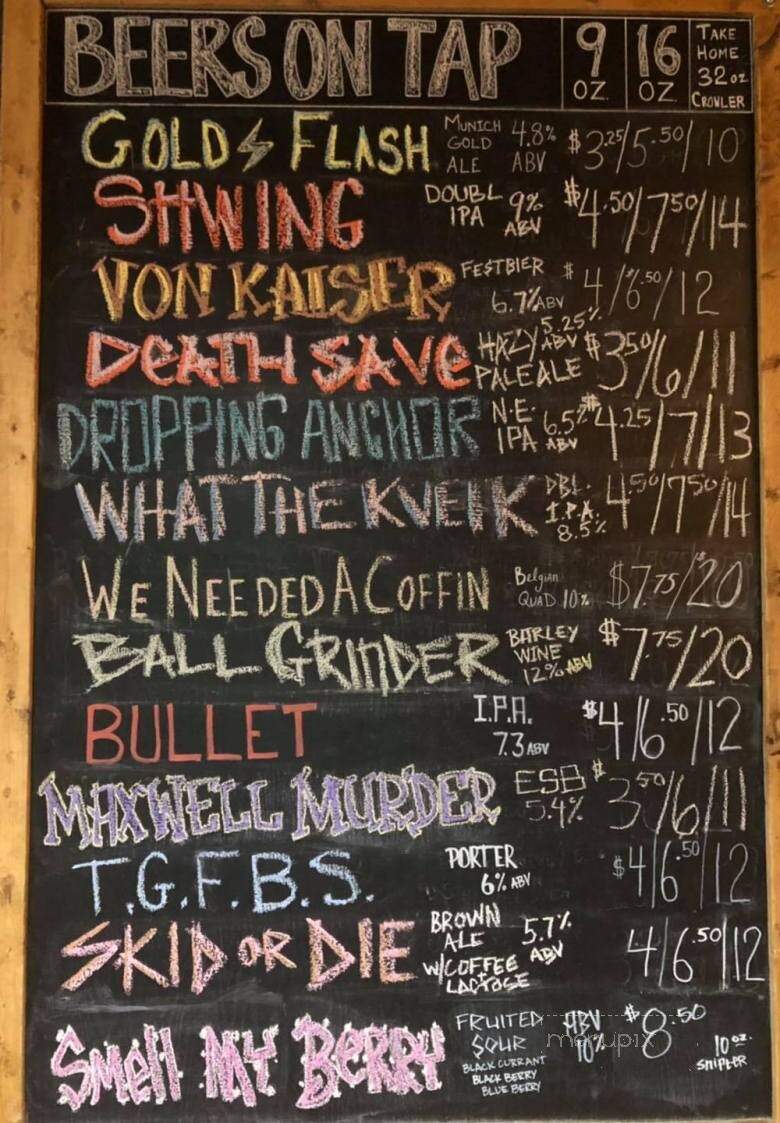 BEERS ON TAP 9 OZ. 16 OZ. TAKE HOME 32 oz CROWLER
GOLD FLASH MUNICH GOLD ALE 4.8% ABV $3.25/5.50/10
SHWING DOUBL IPA 9% ABV $4.50/7.50/14
VON KAISER FESTBIER 6.7% ABV $4/6.50/12
DEATH SAVE HAZY PALE ALE 5.25% ABV $3.50/6/11
DROPPING ANCHOR N.E. IPA 6.5% ABV $4.25/7/13
WHAT THE KVEIK DBL. I.P.A. 8.5% 4.50/7.50/14
WE NEEDED A COFFIN Belgian QUAD 10% $7.75/20
BALL GRINDER BARLEY WINE 12% ABV $7.75/20
BULLET I.P.A. 7.3 ABV $4/6.50/12
MAXWELL MURDER ESB 5.4% $3.50/6/11
T.G.F.B.S. PORTER 6% ABV $4/6.50/12
SKID OR DIE BROWN ALE W/COFFEE LACTOSE 5.7% ABV 4/6.50/12
SMEll MY BERRY FRUITED SOUR BLACK CURRANT BLACK BERRY BLUE BERRY ABV 10% $8.50 10 oz. SNIFTER
menupix